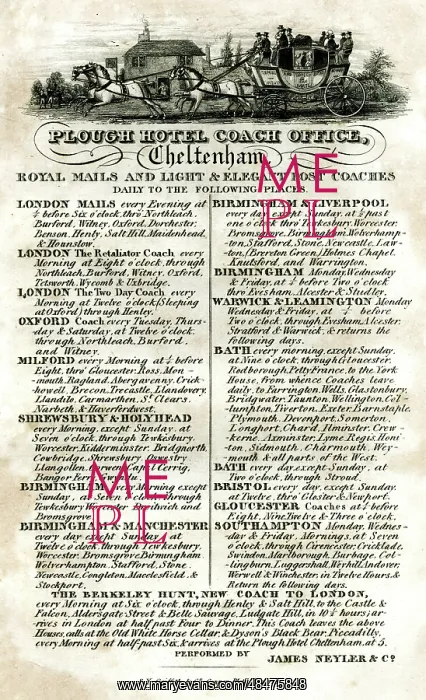 PLOUGH HOTEL COACH OFFICE,
Cheltenham
ROYAL MAILS AND LIGHT & ELEGANT POST COACHES
DAILY TO THE FOLLOWING PLACES.
LONDON MAILS every Evening at
¼ before Six o'clock, thro' Northleach,
Burford, Witney, Oxford, Dorchester,
Benson, Henly, Salt Hill, Maidenhead,
& Hounslow.
LONDON The Retaliator Coach every
Morning at Eight o'clock, through
Northleach, Burford, Witney, Oxford,
Tetsworth, Wycomb & Uxbridge.
LONDON The Two Day Coach, every
Morning at Twelve o'clock (Sleeping
at Oxford) through Henly.
OXFORD Coach every Tuesday, Thurs-
-day & Saturday, at Twelve o'clock,
through Northleach, Burford,
and Witney.
MILFORD every Morning at ¼ before
Eight, thro' Gloucester, Ross, Mon-
-mouth, Ragland, Abergavenny, Crick-
howell, Brecon, Trecastle, Llandovery,
Llandilo, Carmarthen, St. Clears,
Narbeth & Haverfordwest.
SHREWSBURY & HOLYHEAD
every Morning, except Sunday, at
Seven o'clock, through Tewkesbury,
Worcester, Kidderminster, Bridgnorth,
Cowbridge, Shrewsbury, Oswestry,
Llangollen, Corwen, Capel Cerrig,
Bangor Ferry
BIRMINGHAM every Morning except
Sunday, at Seven o'clock, through
Tewkesbury, Worcester, Droitwich and
Bromsgrove.
BIRMINGHAM & MANCHESTER
every day except Sunday at
Twelve o'clock, through Tewkesbury,
Worcester, Bromsgrove, Birmingham
Wolverhampton, Stafford, Stone,
Newcastle, Congleton, Macclesfield, &
Stockport.
BIRMINGHAM & LIVERPOOL
every day except Sunday, at ½ past
one o'clock, thro' Tewkesbury, Worcester,
Bromsgrove, Birmingham, Wolverhamp-
-ton, Stafford, Stone, Newcastle, Law-
-ton, (Brereton Green) Holmes Chapel,
Knutsford, and Warrington.
BIRMINGHAM Monday, Wednesday
& Friday, at ¼ before Two o'clock
thro' Evesham, Alcester & Studley.
WARWICK & LEAMINGTON Monday
Wednesday & Friday, at ¼ before
Two o'clock, through Evesham, Alcester,
Stratford & Warwick, & returns the
following days.
BATH every morning, except Sunday,
at Nine o'clock, through Gloucester,
Rodborough, Petty France, to the York
House, from whence Coaches leave
daily, to Farrington, Wells, Glastonbury,
Bridgwater, Taunton, Wellington, Col-
-lumpton, Tiverton, Exeter, Barnstaple,
Plymouth, Devonport, Somerton,
Longport, Chard, Ilminster, Crew-
-kerne, Axminster, Lyme Regis, Honi-
-ton, Sidmouth, Charmouth, Wey-
-mouth & all parts of the West.
BATH every day, except Sunday, at
Two o'clock, through Stroud.
BRISTOL every day, except Sunday,
at Twelve, thro' Glo'ster & Newport.
GLOUCESTER Coaches at ¼ before
Eight, Nine, Twelve & Three o'clock.
SOUTHAMPTON Monday, Wednes-
-day & Friday, Mornings, at Seven
o'clock, through Cirencester, Cricklade,
Swindon, Marlborough, Burbage, Col-
-lingburn, Luggershall, Weyhill, Andover,
Werwell & Winchester in Twelve hours, &
Return the following days.
THE BERKELEY HUNT, NEW COACH TO LONDON,
every Morning at Six o'clock, through Henly & Salt Hill, to the Castle &
Falcon, Aldersgate Street & Belle Sauvage, Ludgate Hill, in 10½ hours; ar-
-rives in London at half past Four to Dinner. This Coach leaves the above
Houses, calls at the Old White Horse Cellar, & Dyson's Black Bear, Piccadilly,
every morning at half-past Six, & arrives at the Plough Hotel Cheltenham, at 5.
PERFORMED BY
JAMES NEYLER & Co.
ME
PL
ME
PL
www.maryevans.com/48475848